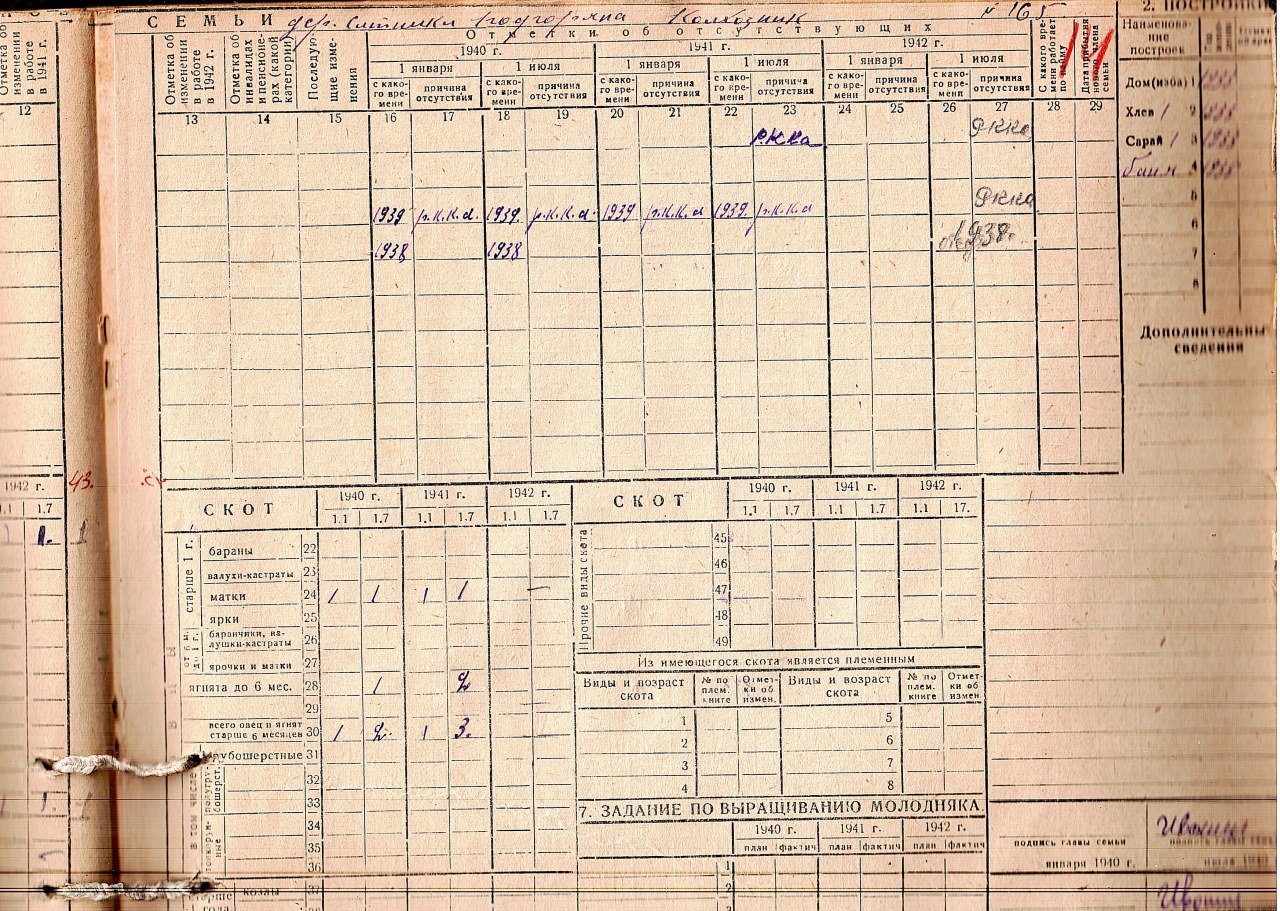 СЕМЬИ Колхозник № 165
Отметки об отсутствующих
1940 г. 1941 г. 1942 г.
1 января 1 июля 1 января 1 июля 1 января 1 июля
Отметка об изменении в работе в 1941 г.
Отметка об изменении в работе в 1942 г.
Отметка об инвалидах и пенсионерах (какой категории)
Последующие изменения
с како-го вре-мени причина отсутствия с како-го вре-мени причина отсутствия с како-го вре-мени причина отсутствия с како-го вре-мени причина отсутствия с како-го вре-мени причина отсутствия с како-го вре-мени причина отсутствия
С какого вре-мени работает по найму
Дата прибытия нового члена семьи
12 13 14 15 16 17 18 19 20 21 22 23 24 25 26 27 28 29
РККа РККа
1939 р.К.К.а. 1939. р.К.К.а. 1939 р.К.К.а 1939. р.К.К.а РККа
1938 1938 1938г.
2. ПОСТРОЙКИ
Наименова-
ние
построек
Дом (изба) 1
Хлев 1 2
Сарай 1 3
4
5
6
7
8
Дополнительны
сведения
1942 г.
1.1 1.7
43.
1. 1
1.
СКОТ 1940 г. 1941 г. 1942 г.
1.1 1.7 1.1 1.7 1.1 1.7
старше 1 г.
бараны 22
валухи-кастраты 23
матки 24 1 1 1 1 —
ярки 25
от 6 м. до 1 г.
баранчики, ва-
лушки-кастраты 26
ярочки и матки 27
ягнята до 6 мес. 28 1 2
29
всего овец и ягнят
старше 6 месяцев 30 1 2. 1 3.
в том числе
грубошерстные 31
32
33
34
35
козлы 37
СКОТ 1940 г. 1941 г. 1942 г.
1.1 1.7 1.1 1.7 1.1 17.
Прочие виды скота
45
46
47
48
49
Из имеющегося скота является племенным
Виды и возраст скота № по плем. книге Отмет-ки об измен. Виды и возраст скота № по плем. книге Отмет-ки об измен
1 5
2 6
3 7
4 8
7. ЗАДАНИЕ ПО ВЫРАЩИВАНИЮ МОЛОДНЯКА
1940 г. 1941 г. 1942 г.
план фактич план фактич план фактич
1
2
подпись главы семьи
января 1940 г.